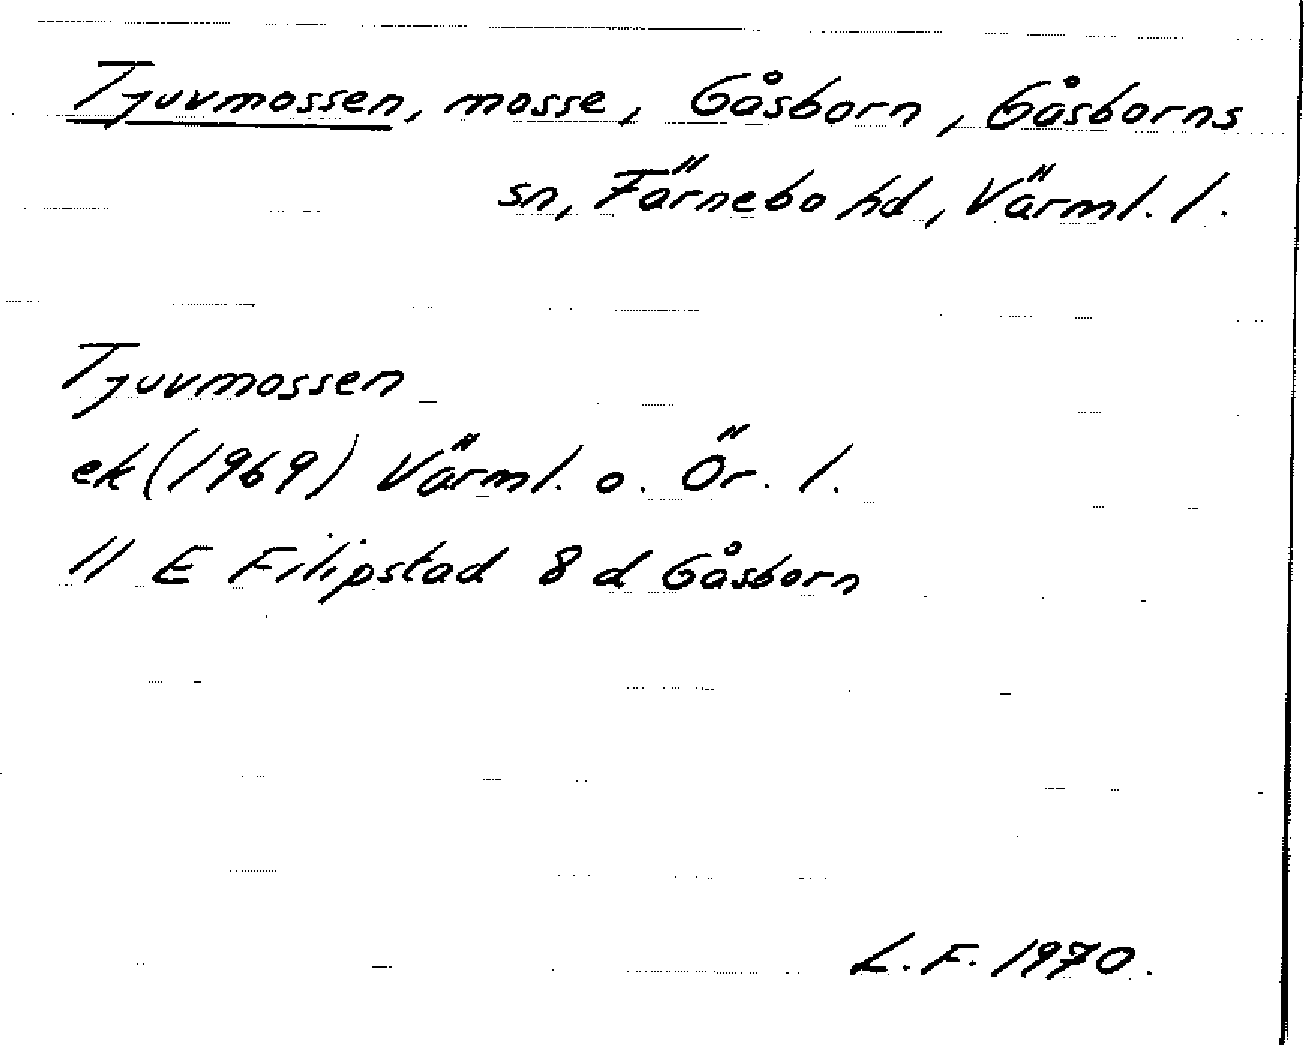 Tjuvmossen, mosse, Gåsborn, Gåsborns
sn, Färnebo hd, Värml. l.
Tjuvmossen
ek (1969) Värml. o. Ör. l.
11 E Filipstad 8 d Gåsborn
L.F. 1970.